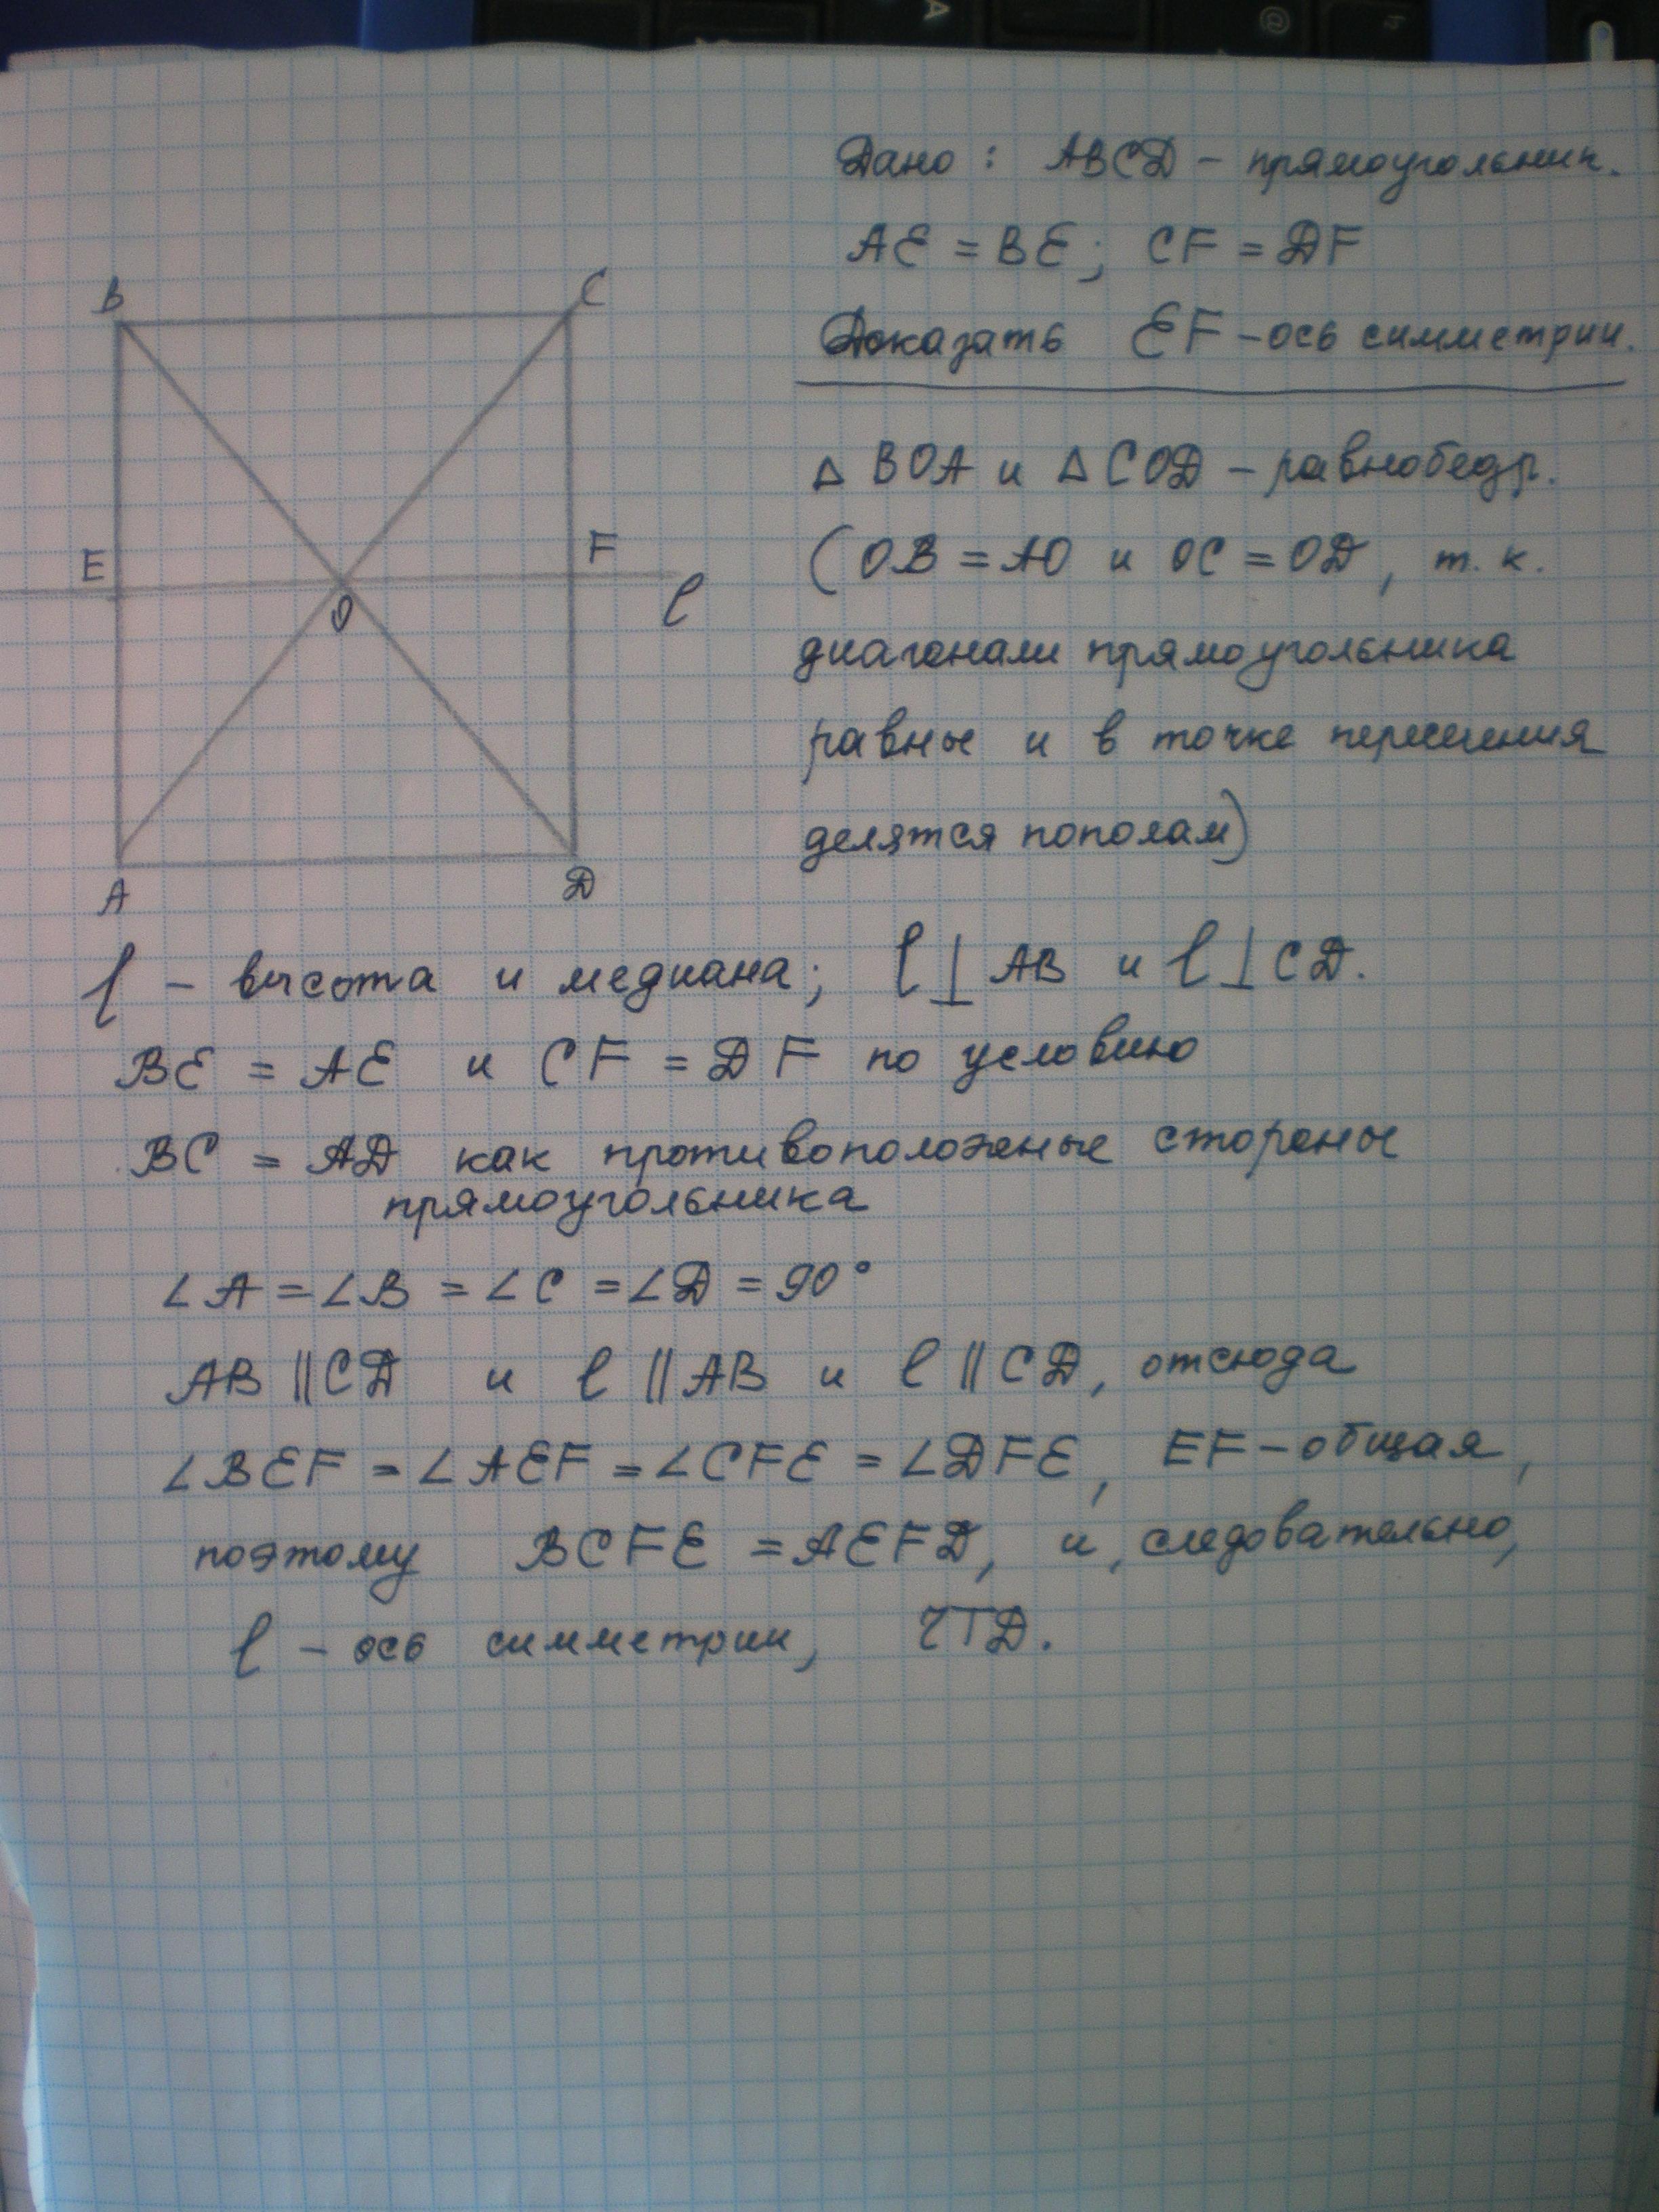 Дано: ABCD – прямоугольник.
AE = BE; CF = DF
Доказать EF – ось симметрии.
B
C
E
F
O
l
A
D
△ BOA и △ COD – равнобедр.
(OB = AO и OC = OD, т. к.
диагонали прямоугольника
равны и в точке
делятся пополам)
l – высота и медиана; l ⊥ AB и l ⊥ CD.
BE = AE и CF = DF по условию
BC = AD как противоположные стороны
прямоугольника
∠A = ∠B = ∠C = ∠D = 90°
AB || CD и l || AB и l || CD, отсюда
∠BEF = ∠AEF = ∠CFE = ∠DFE, EF – общая,
поэтому BCFE = AEFD, и, следовательно,
l – ось симметрии, ЧТД.